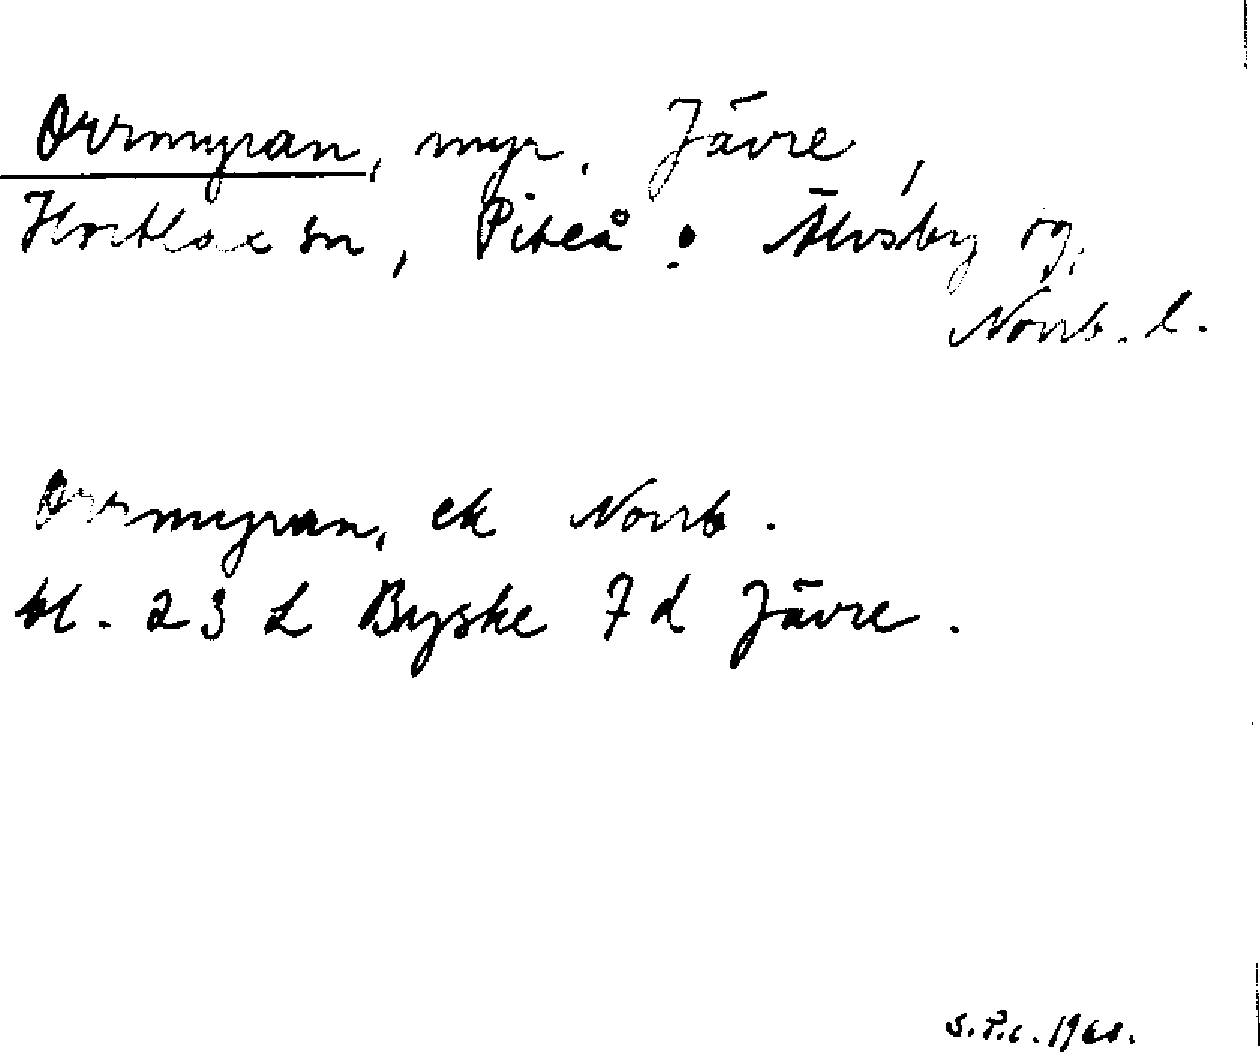 Orrmyran, myr, Jävre,
Hortlax sn, Piteå o Älvsby
Norrb. l.
Orrmyran, ek Norrb.
bl. 23 L Byske 7d Jävre.